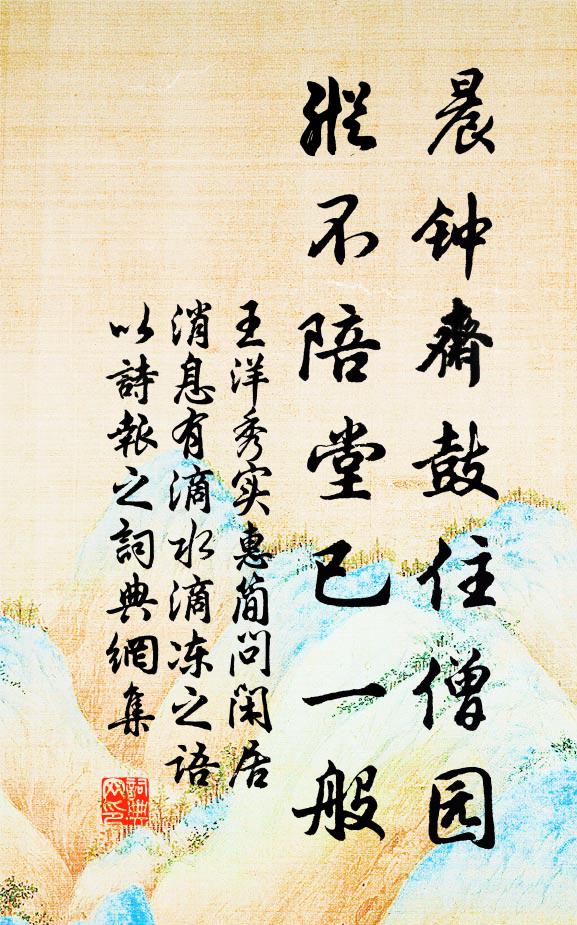 晨钟斋鼓住僧园
縱不陪堂已一般
王洋秀实惠简问闲居
消息有滴水滴冻之语
以詩報之詞典網集